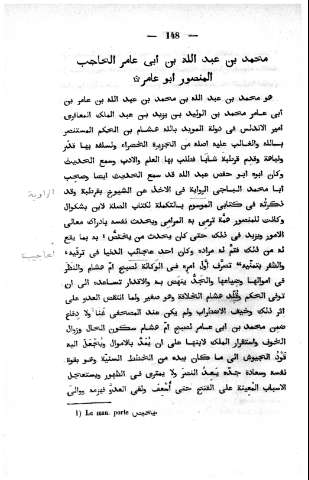 — 148 —
محمد بن عبد الله بن ابى عامر الحاجب
المنصور ابو عامر
هو محمد بن عبد الله بن محمد بن عبد الله بن عامر بن
ابى عامر محمد بن الوليد بن يزيد بن عبد الملك المعافرى
امير الاندلس فى دولة المويد بالله هشام بن الحكم المستنصر
بالله والغالب عليه اصله من الجزيرة الخضراء ولسلفه بها قدر
ونباهة وقدم قرطبة شابا فطلب بها العلم والادب وسمع الحديث
وكان ابوه ابو حفص عبد الله قد سمع الحديث ايضا وصحب
ابا محمد الباجى الرواية فى الاخذ عن الشيوخ بقرطبة وقد
ذكرته فى كتابى الموسوم بالتكملة لكتاب الصلة لابن بشكوال
وكانت للمنصور همة ترمى به المرامى ويحدث نفسه بادراك معالى
الامور ويزيد فى ذلك حتى كان يحدث من يختص به بما يقع
له من ذلك فتم له مراده وكان احد عجائب الدنيا فى ترقيه
والظفر بتمنيه تصرف اول امره فى الوكالة لصبح ام هشام والنظر
فى اموالها وضياعها والجد ينهض به والاقدار تساعده الى ان
توفى الحكم وقلد هشام الخلافة وهو صغير ولما انتقض العدو على
اثر ذلك وخيف الاضطراب ولم يكن عند المصحفى غناء ولا دفاع
ضمن محمد بن ابى عامر لصبح ام هشام سكون الحال وزوال
الخوف واستقرار الملك لابنها على ان يمد بالاموال ويجعل اليه
قود الجيوش الى ما كان بيده من الخطط السنية وهو بقوة
نفسه وسعادة جده يعد النصر ولا يمترى فى الظهور ويستعجل
الاسباب المعينة على الفتح حتى اسعف ولقى العدو فهزمه ووالى
1) Le man. porte